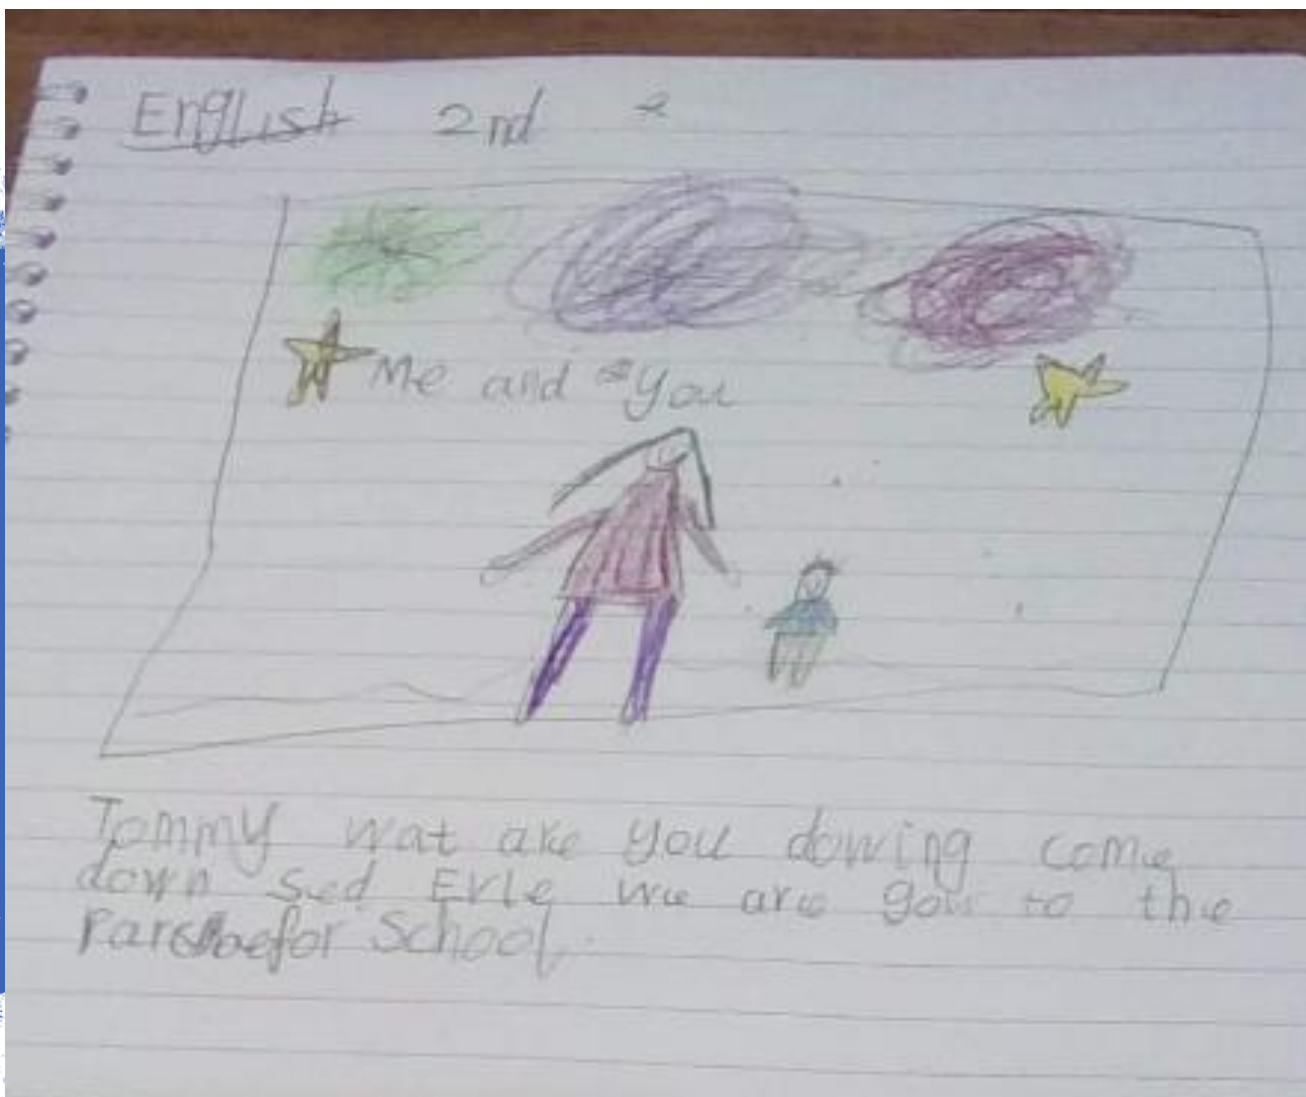 English 2nd
Me and you
Tommy wat are you dowing come
down sed Evle we are gow to the
Parc befor School.